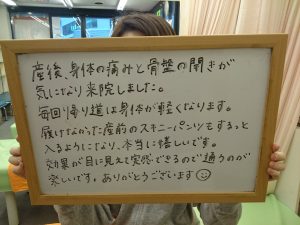 産後、身体の痛みと骨盤の開きが
気になり来院しました。
毎回帰り道は身体が軽くなります。
履けなかった産前のスキニーパンツもするっと
入るようになり、本当に嬉しいです。
効果が目に見えて実感できるので通うのが
楽しいです。ありがとうございます☺